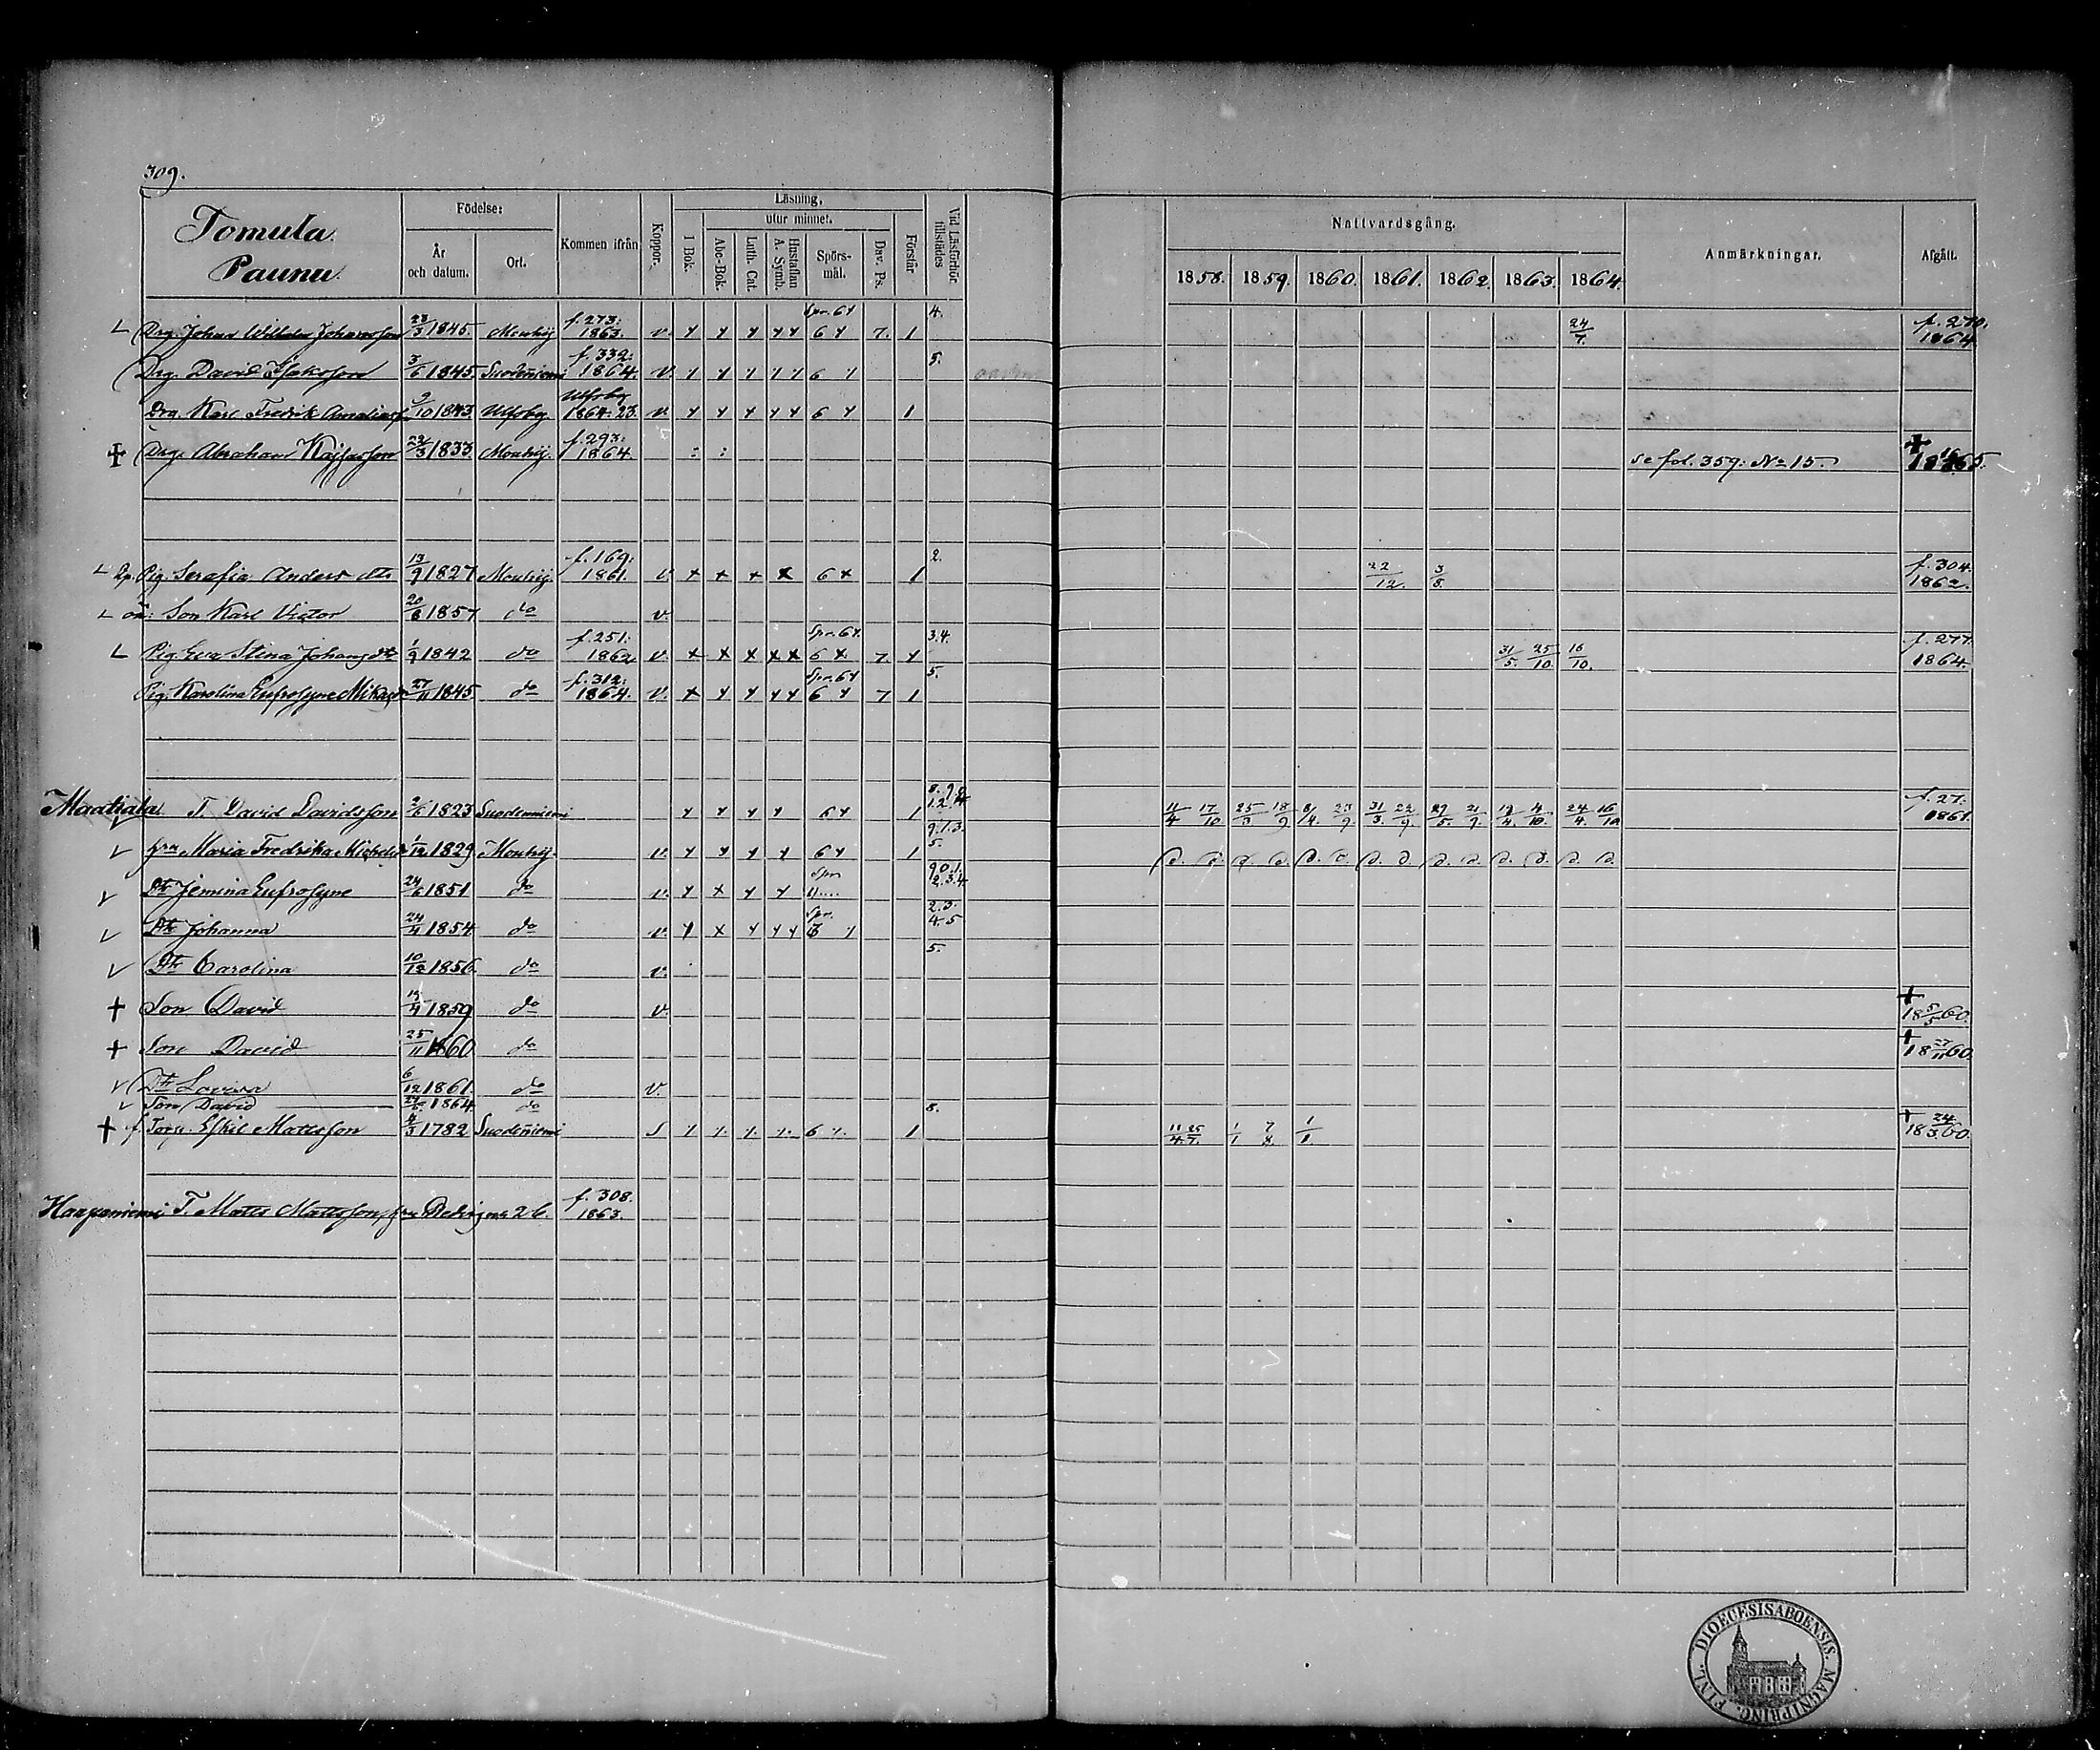 309.
Tomula.
Paunu.
Födelse:
År och datum.
Ort.
Kommen ifrån
Koppor.
Läsning,
I Bok.
utur minnet.
Abc-Bok.
Luth. Cat.
Hustaflan A. Symb.
Spörsmål.
Dav. Ps.
Förstår
Vid Läsförhör. tillstädes
Nattvardsgång.
1858. 1859. 1860. 1861. 1862. 1863. 1864.
Anmärkningar.
Afgått.
Drg. Johan Wilhelm Johansson 23/3 1845. Mouhij f. 273: 1863. v. 7. 1 4. 24/7. f. 270. 1864
Drg. David Isaksson 3/6 1845 Suodeniemi f. 332: 1864. v. 6 5.
Drg. Karl Fredrik 9/10 1843 Ulfsby Ulfsby 1864: 23. v. 6 1
Drg. Abraham Kajsasson 23/3 1833. Mouhij. f. 293: 1864. se fol. 359: No 15.
Pig. Serafia Anders dtr 13/9 1827 Mouhij. f. 169: 1861. v. 6 1 2. 22/12. 3/8. f. 304. 1862.
oä: Son Karl Victor 20/8 1857 do v.
Pig. Eva Stina Johans dtr 1/9 1842 do f. 251: 1862 v. Spr. 6 7. 3.4. 31/5. 25/10 16/10. f. 277. 1864.
Pig. Karolina Eufrosyne 27/11 1845 do f. 312: 1864. v. Spr. 6 7 1 5.
Maatiala T. David Davidsson 2/6 1823 Suodeniemi 6 1 11/4 17/10 25/3 18/9 8/4. 23/9 31/3. 22/9. 29/5. 21/9 12/4. 4/10. 24/4. 16/10 f. 27. 1861.
hru Maria Fredrika 1/12 1829 Mouhij. v. 6 1 9.1.3. 5.
Dtr Jemina Eufrosyne 24/6 1851 do v. Spr 9 0.1. 2.3.4
Dtr Johanna 24/4 1854 do v. Spr. 2.3. 4.5
Dtr Carolina 10/12 1856. do v. 5.
Son David 1859 do v. + 18 5/5 60.
Son David 25/11 1860 do + 18 27/11 60.
Dtr Lovisa 6/12 1861. do v.
Son David 1864. do
f. Torp. Eskil Mattsson 4/3 1782 Suodeniemi S 6 1 8. 11/4. 25/7. 1/1 7/8. 1/1. + 18 24/3 60.
Haapaniemi T. Matts Mattsson, 26. f. 308. 1863.
FINL. DIOECESIS ABOENSIS. MAGNI PRINC.